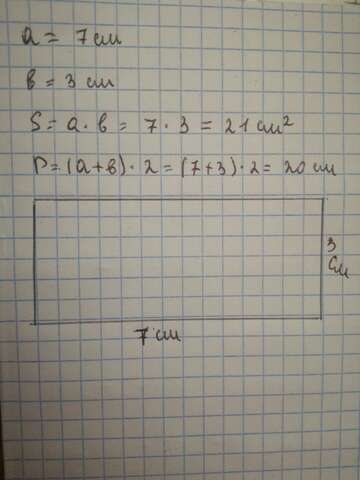 a = 7 см
в = 3 см
S = a · в = 7 · 3 = 21 см²
P = (a+в) · 2 = (7+3) · 2 = 20 см
3
см
7 см